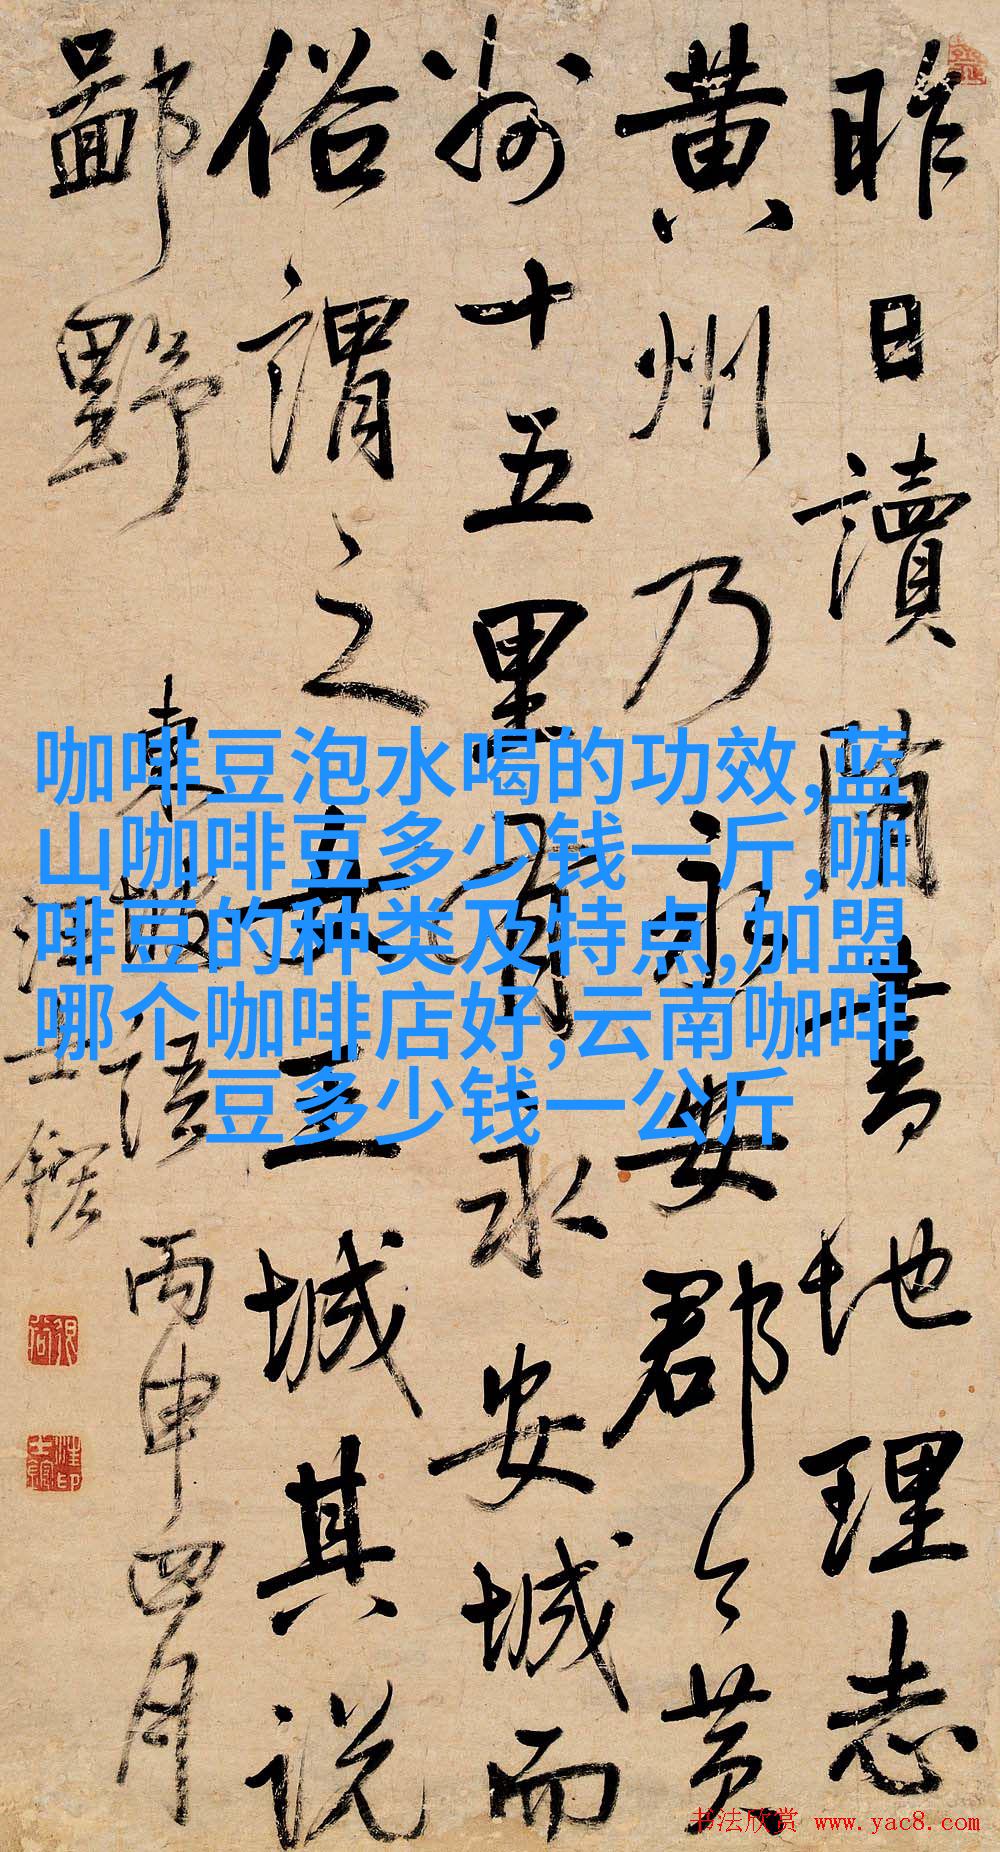 昨日讀隋書地理志
黄州乃永安郡今黄
州十五里有永安城而
俗謂之女王城其说
鄙野
東坡語 丙申四月
汪士鋐
咖啡豆泡水喝的功效,蓝
山咖啡豆多少钱一斤,咖
啡豆的种类及特点,加盟
哪个咖啡店好,云南咖啡
豆多少钱一公斤
书法欣赏 www.yac8.com